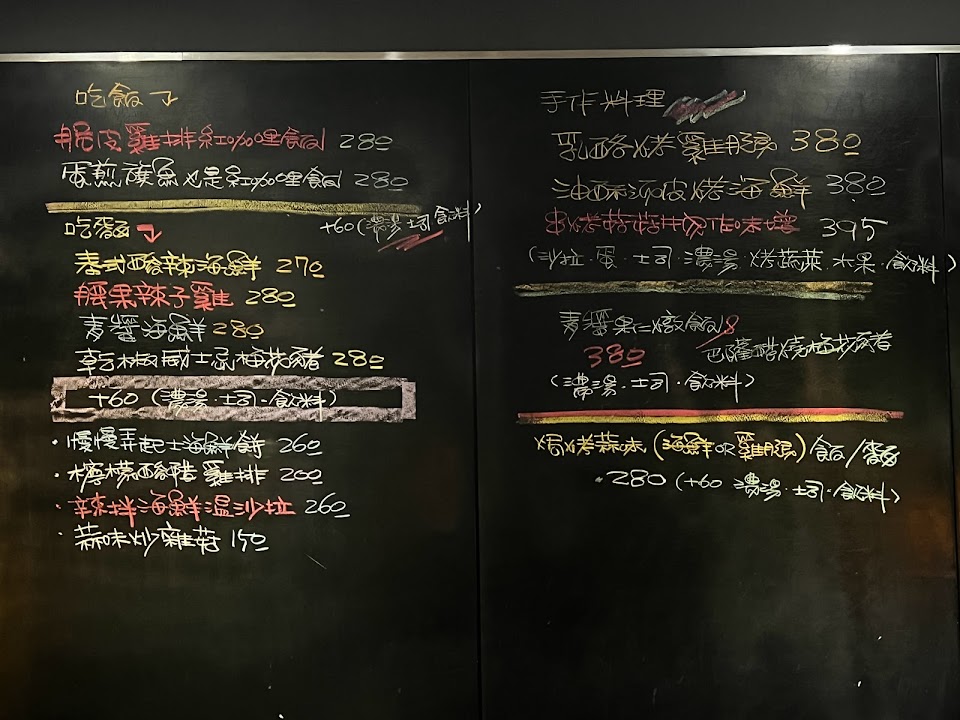 吃飯
脆皮雞排紅咖哩飯 280
蛋煎鯖魚也是紅咖哩飯 280
+60(濃湯.土司.飲料)
吃麵
泰式酸辣海鮮 270
腰果辣子雞 280
青醬海鮮 280
乾椒威士忌梅花豬 280
+60 (濃湯.土司.飲料)
·慢慢弄起士海鮮餅 260
·檸檬酸 雞排 200
·辣拌海鮮溫沙拉 260
·蒜味炒雜菇 150
手作料理
乳酪烤雞腿 380
油酥 皮烤海鮮 382
395
(沙拉.蛋.土司.濃湯.烤蔬菜.水果.飲料)
青醬果仁燉飯
380 巴薩醋燒梅花豬
(濃湯.土司.飲料)
焗烤蒜味(海鮮or雞腿)飯/麵
·280 (+60 濃湯.土司.飲料)